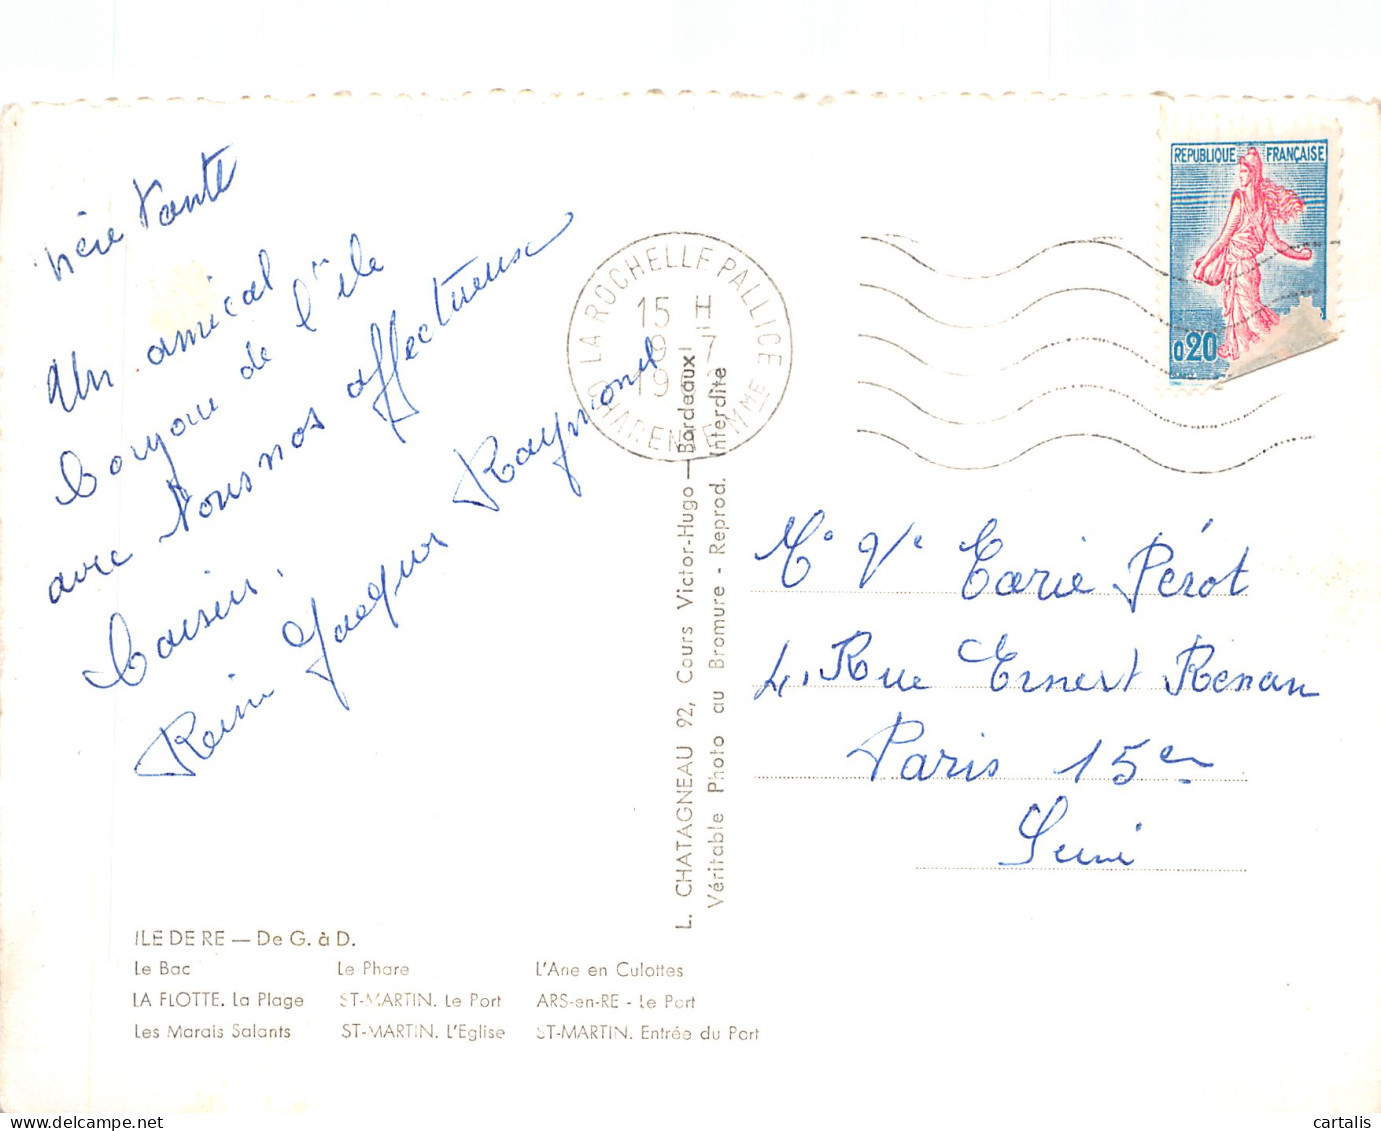 chère Tante
Un amical
bonjour de l'île
avec tous nos affectueux
baisers.
Jacques Raymond
LA ROCHELLE PALLICE
15 H
9-7
19
CHARENTE MME
REPUBLIQUE FRANÇAISE
0.20
Me Ve Marie Pérot
4, Rue Ernest Renan
Paris 15en
Seine
L. CHATAGNEAU 92, Cours Victor-Hugo — Bordeaux
Véritable Photo au Bromure - Reprod. Interdite
ILE DE RE — De G. à D.
Le Bac Le Phare L'Ane en Culottes
LA FLOTTE. La Plage ST-MARTIN. Le Port ARS-en-RE - Le Port
Les Marais Salants ST-MARTIN. L'Eglise ST-MARTIN. Entrée du Port
cartalis